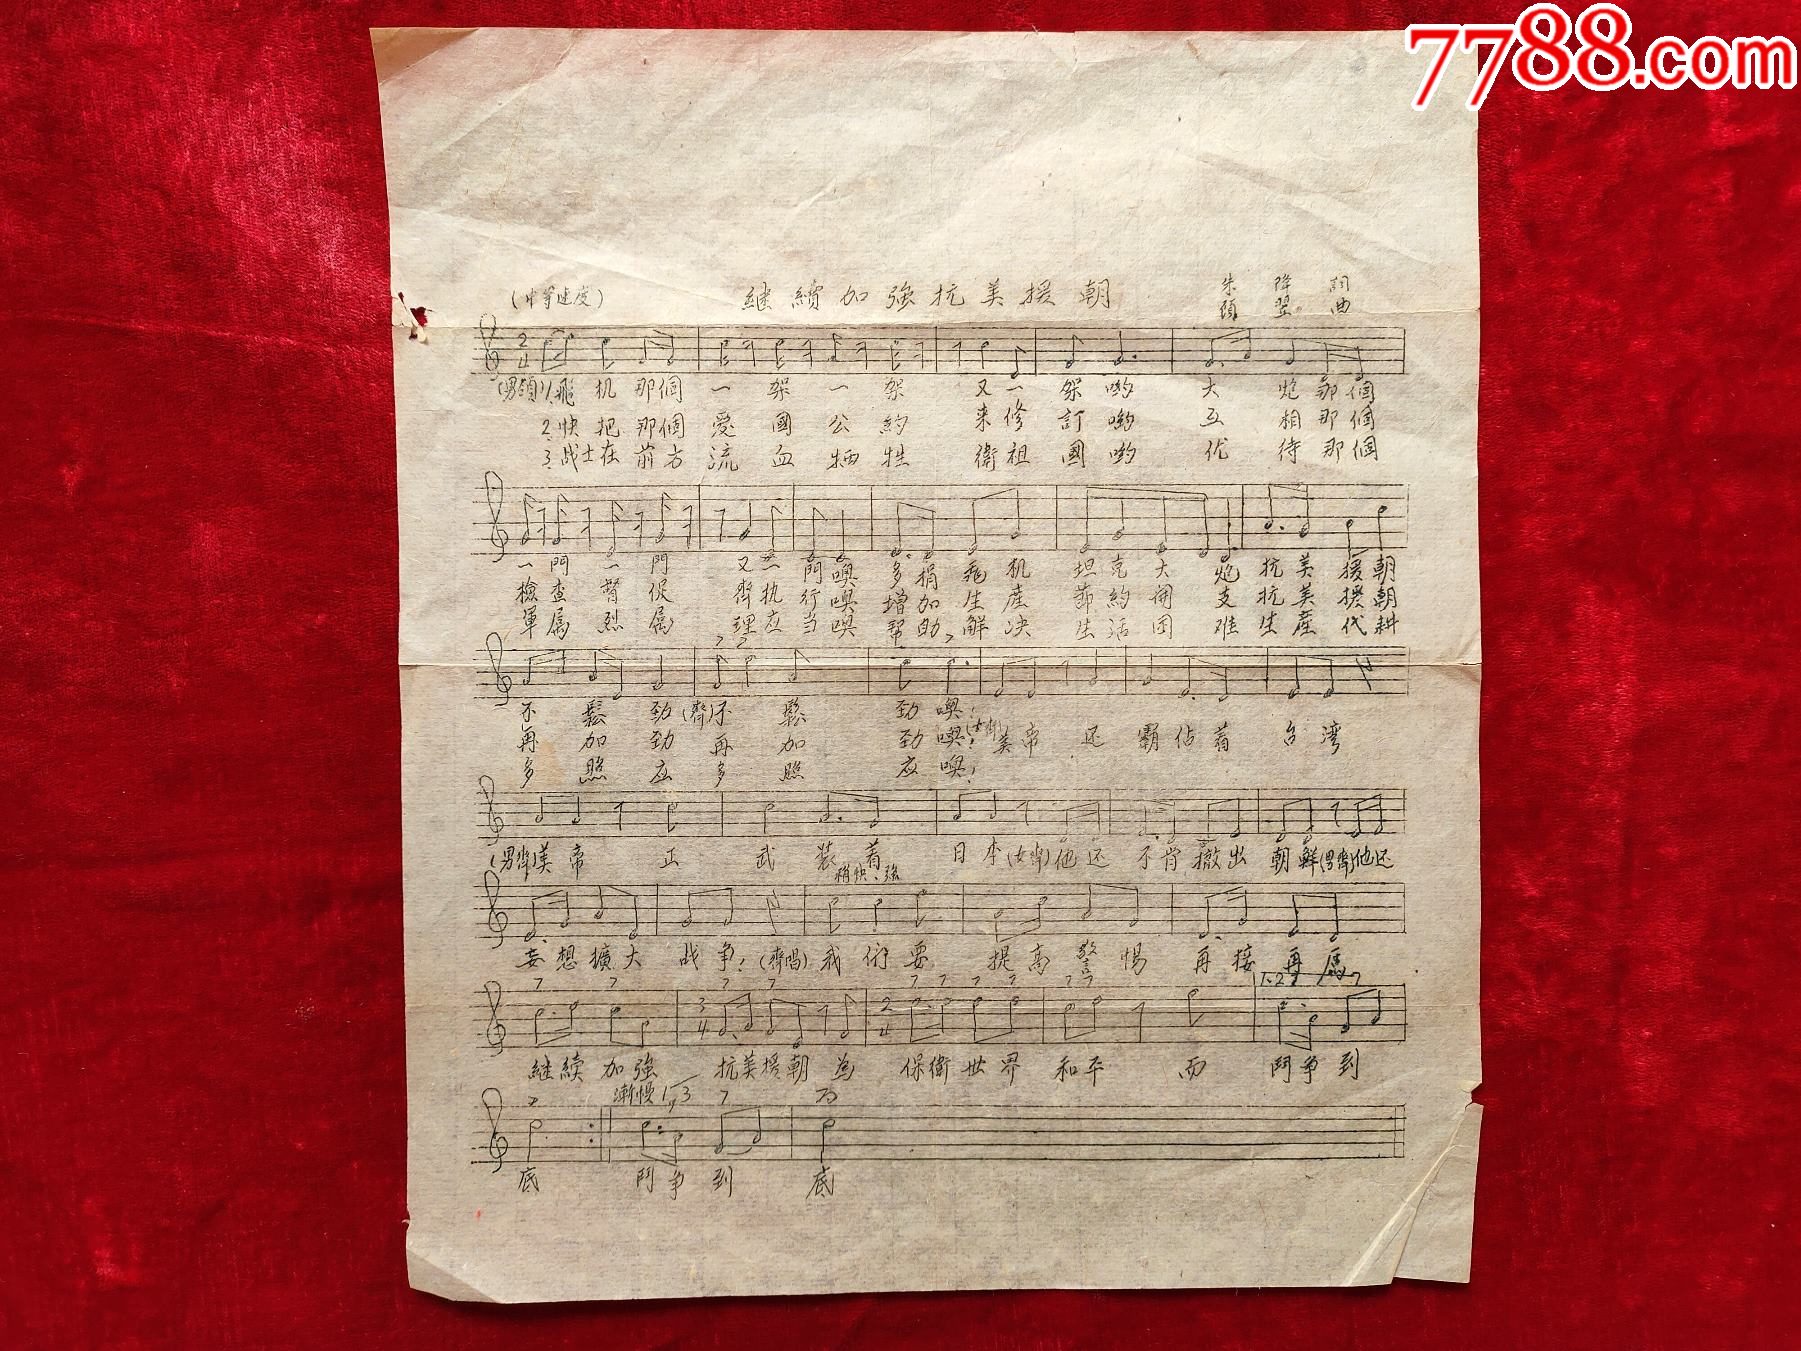 7788.com
(中等速度) 继續加強抗美援朝 朱降詞
碩翌曲
2/4
(男領)1.飛机那個一架一架又一架哟大炮那個
2.快把那個愛國公約来修訂哟互相那個
3.战士在前方流血牺牲衛祖國哟优待那個
一門一門又一門噢多捐飛机坦克大炮抗美援朝
檢查督促齊执行噢增加生産節約開支抗美援朝
軍属烈属理应当噢帮助解决生活困难生産代耕
不鬆劲(齊)不鬆劲噢!
再加劲再加劲噢!(女齊)美帝还霸佔着台湾
多照应多照应噢!
(男齊)美帝正武装着日本(女齊)他还不肯撤出朝鮮(男齊)他还
稍快、強
妄想擴大战争!(齊唱)我们要提高警惕再接再厲
1.2
3/4 2/4
继續加強抗美援朝為保衛世界和平而鬥争到
漸慢 3
底鬥争到底